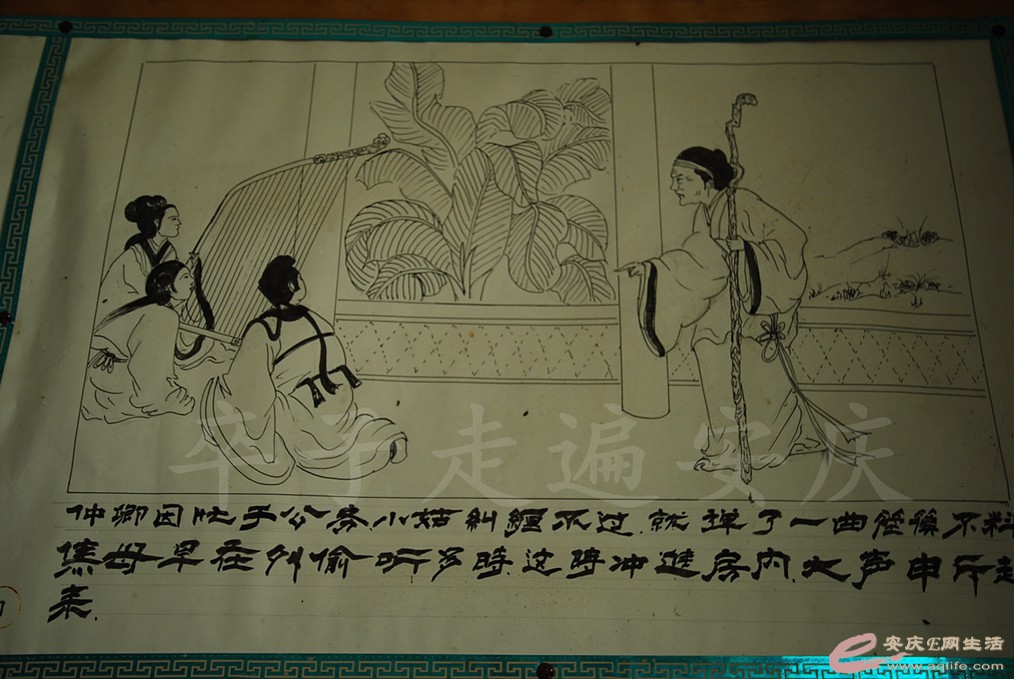 卒子走遍安庆
仲卿因忙于公务.小姑糾纏不过.就弹了一曲箜篌不料
焦母早在外偷听多時.这時冲進房内.大声申斥起
来.
安庆E网生活
www.aqlife.com